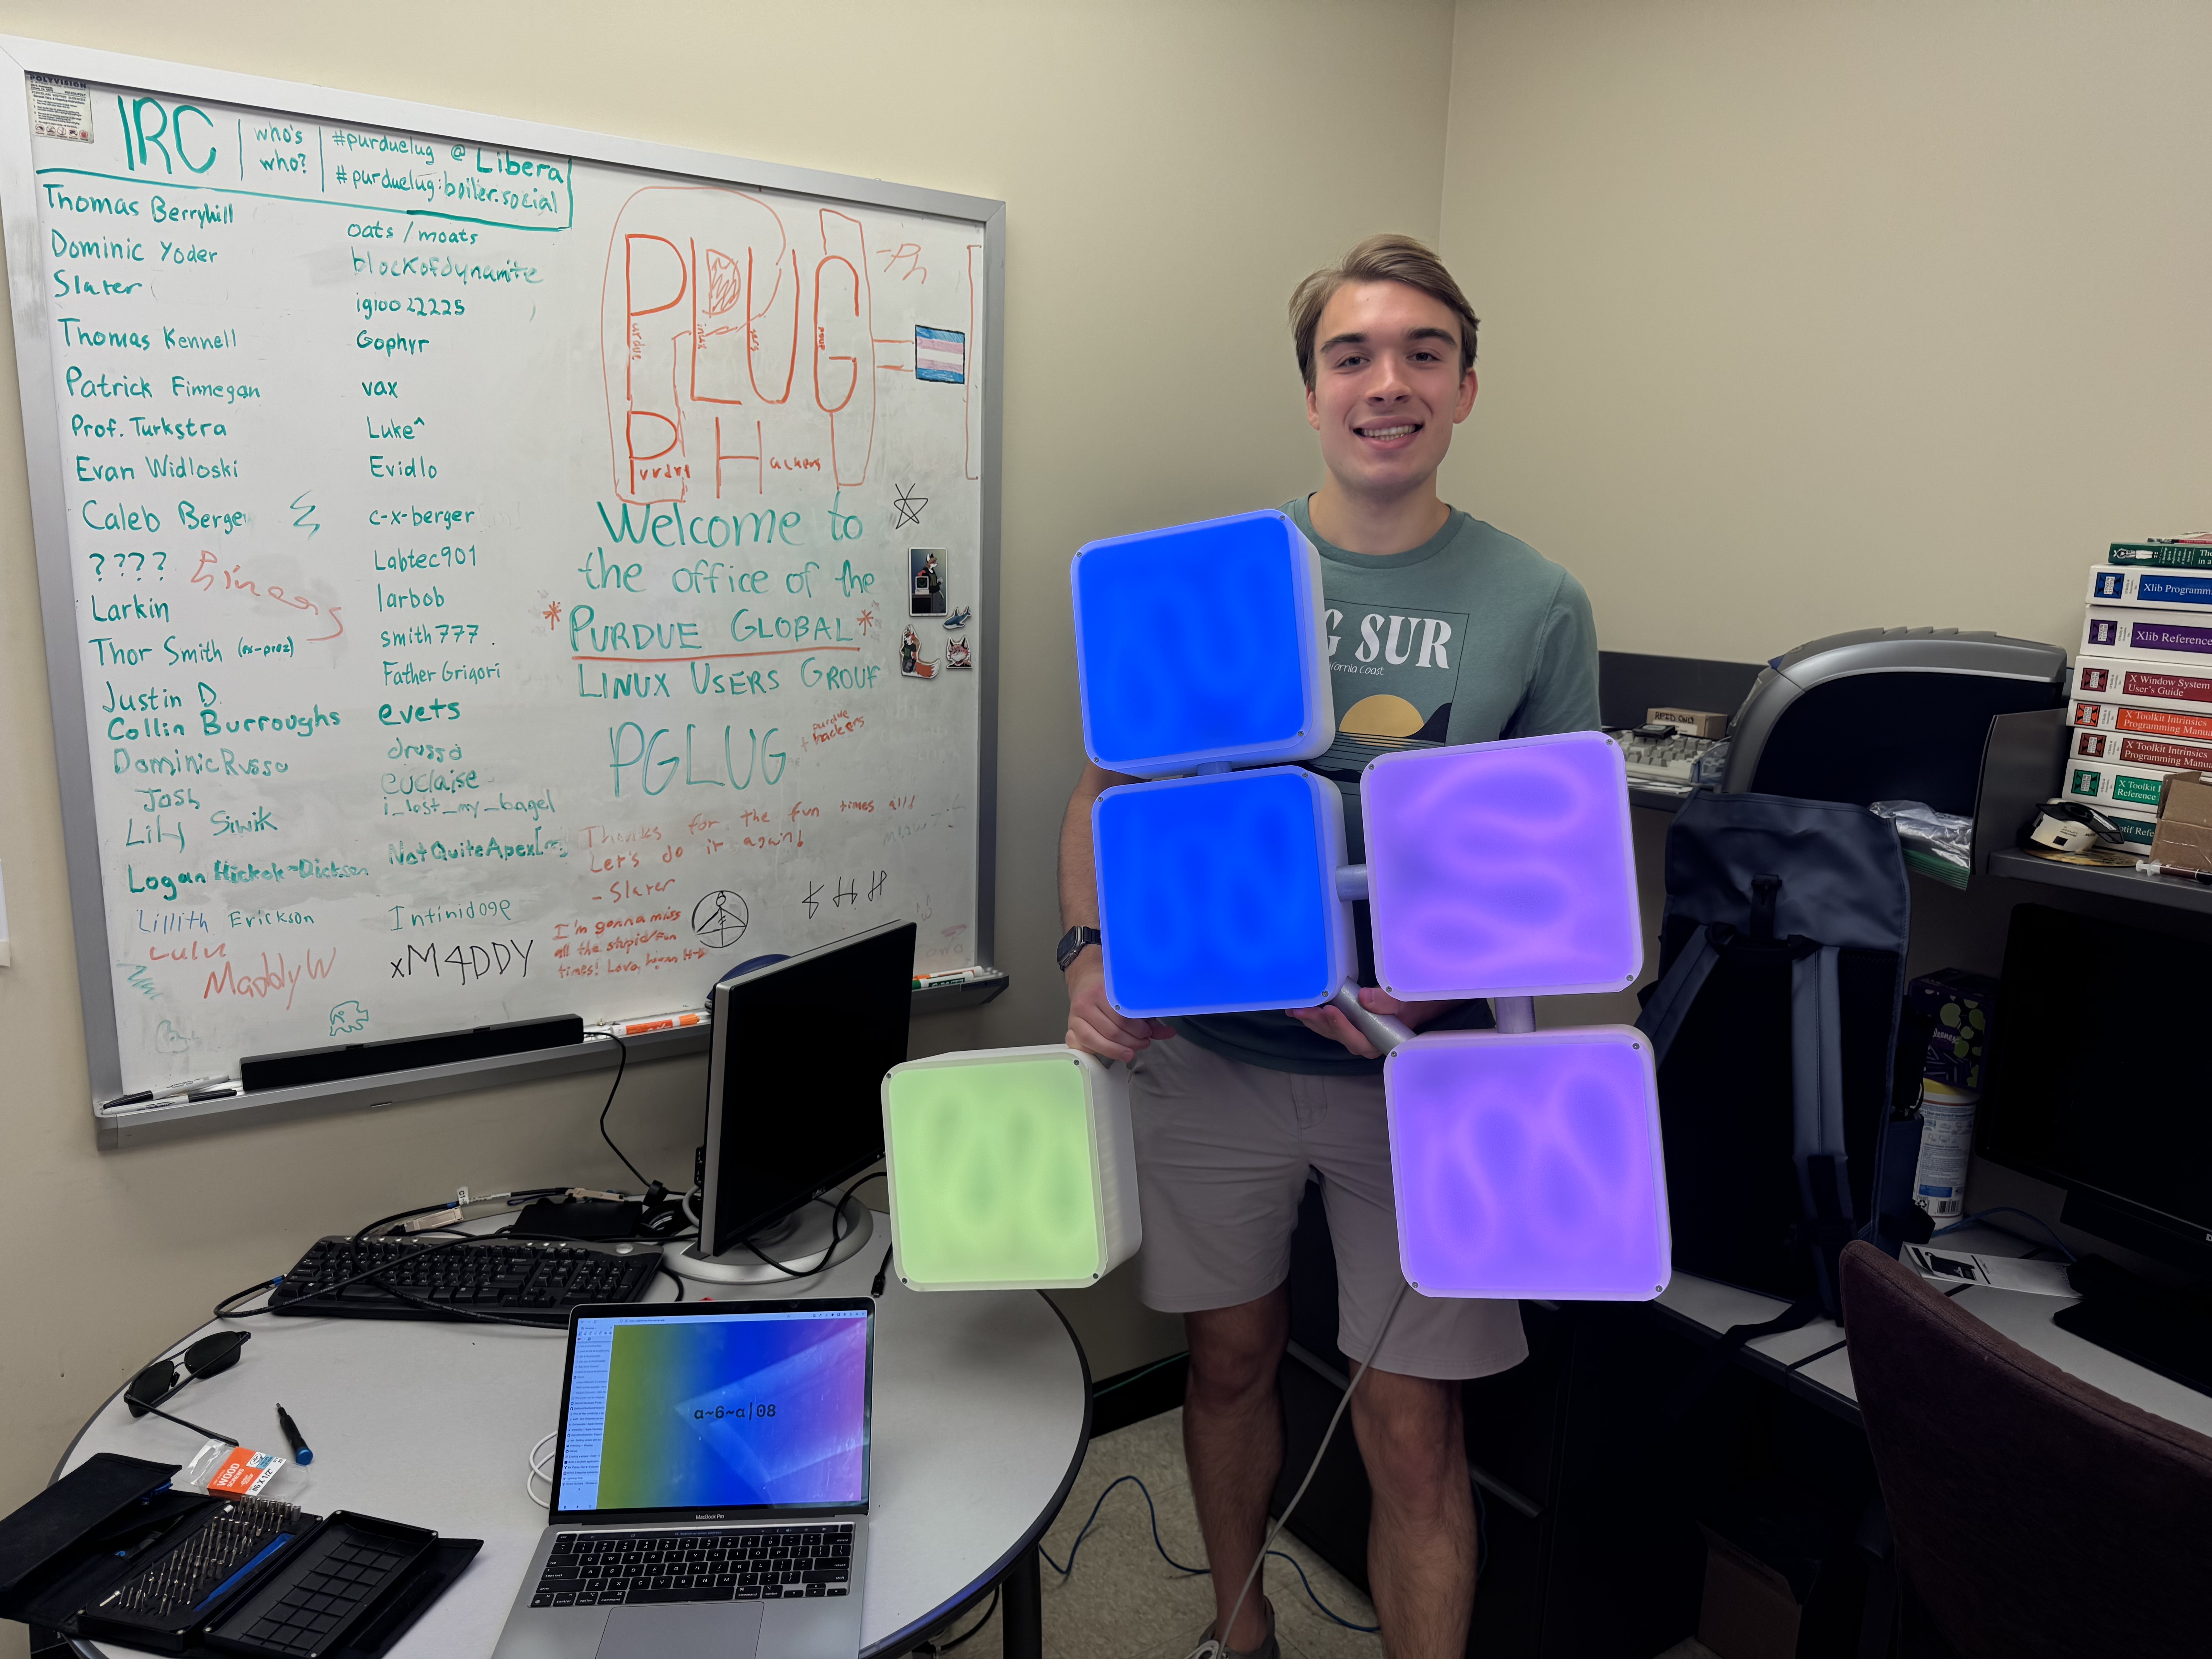 POLYVISION
IRC
who's
who?
#purduelug @ Libera
#purduelug:boiler.social
Thomas Berryhill
oats / moats
Dominic Yoder
blockofdynamite
Slater
Thomas Kennell
Gophyr
Patrick Finnegan
vax
Prof. Turkstra
Luke^
Evan Widloski
Evidlo
Caleb Berger
c-x-berger
????
Labtec901
Larkin
larbob
Thor Smith (ex-prez)
smith777
Father Grigori
Justin D.
evets
Collin Burroughs
drusso
Dominic Russo
euclaise
Josh
i_lost_my_bagel
Lily Siwik
NotQuiteApex
Logan Hickok-Dickson
Lillith Erickson
Infinidoge
Lulu
MaddyW
xM4DDY
PLUG
Purdue
Linux
Users
Group
-Ph
PH
Purdue
Hackers
Welcome to
the office of the
*PURDUE GLOBAL*
LINUX USERS GROUP
PGLUG
+ purdue
hackers
Thanks for the fun times all!
Let's do it again!
- Slater
I'm gonna miss
all the stupid/fun
times! Love,
G SUR
ifornia Coast
RFID ONLY
Xlib Programm
Xlib Reference
X Window System
User's Guide
X Toolkit Intrinsics
Programming Manua
X Toolkit Intrinsics
Programming Manua
X Toolkit I
Reference
otif Refe
a~6~a|08
MacBook Pro
WOOD
SCREWS
#6 X 1/2"